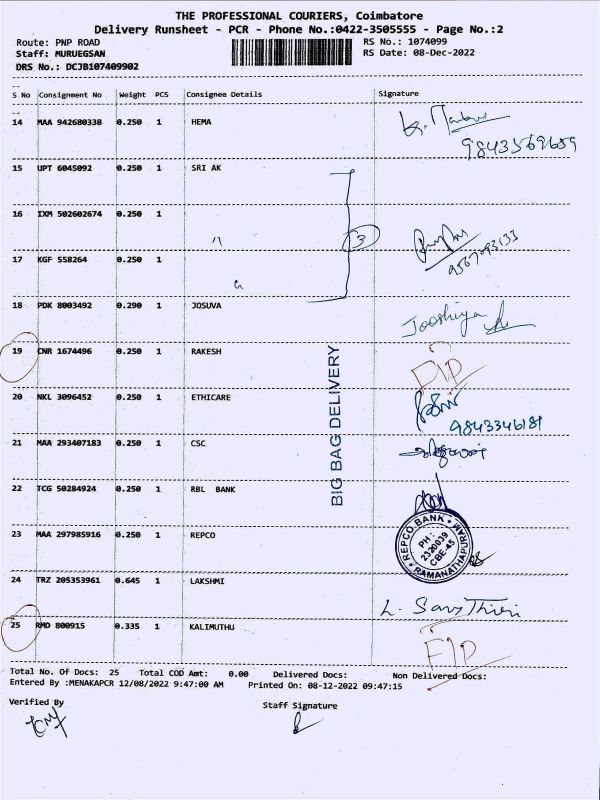 THE PROFESSIONAL COURIERS, Coimbatore
Delivery Runsheet - PCR - Phone No.:0422-3505555 - Page No.:2
Route: PNP ROAD RS No.: 1074099
Staff: MURUEGSAN RS Date: 08-Dec-2022
DRS No.: DCJB107409902
S No Consignment No Weight PCS Consignee Details Signature
14 MAA 942680338 0.250 1 HEMA
9843569659
15 UPT 6045092 0.250 1 SRI AK
16 IXM 502602674 0.250 1 "
3
17 KGF 558264 0.250 1 "
9567093133
18 PDK 8003492 0.290 1 JOSUVA Jooshiya
19 CNR 1674496 0.250 1 RAKESH
20 NKL 3096452 0.250 1 ETHICARE
9843346181
21 MAA 293407183 0.250 1 CSC
BIG BAG DELIVERY
22 TCG 50284924 0.250 1 RBL BANK
23 MAA 297985916 0.250 1 REPCO
REPCO BANK
PH:
2320039
CBE-45
RAMANATHAPURAM
24 TRZ 205353961 0.645 1 LAKSHMI
25 RMD 800915 0.335 1 KALIMUTHU
Total No. Of Docs: 25 Total COD Amt: 0.00 Delivered Docs: Non Delivered Docs:
Entered By :MENAKAPCR 12/08/2022 9:47:00 AM Printed On: 08-12-2022 09:47:15
Verified By Staff Signature